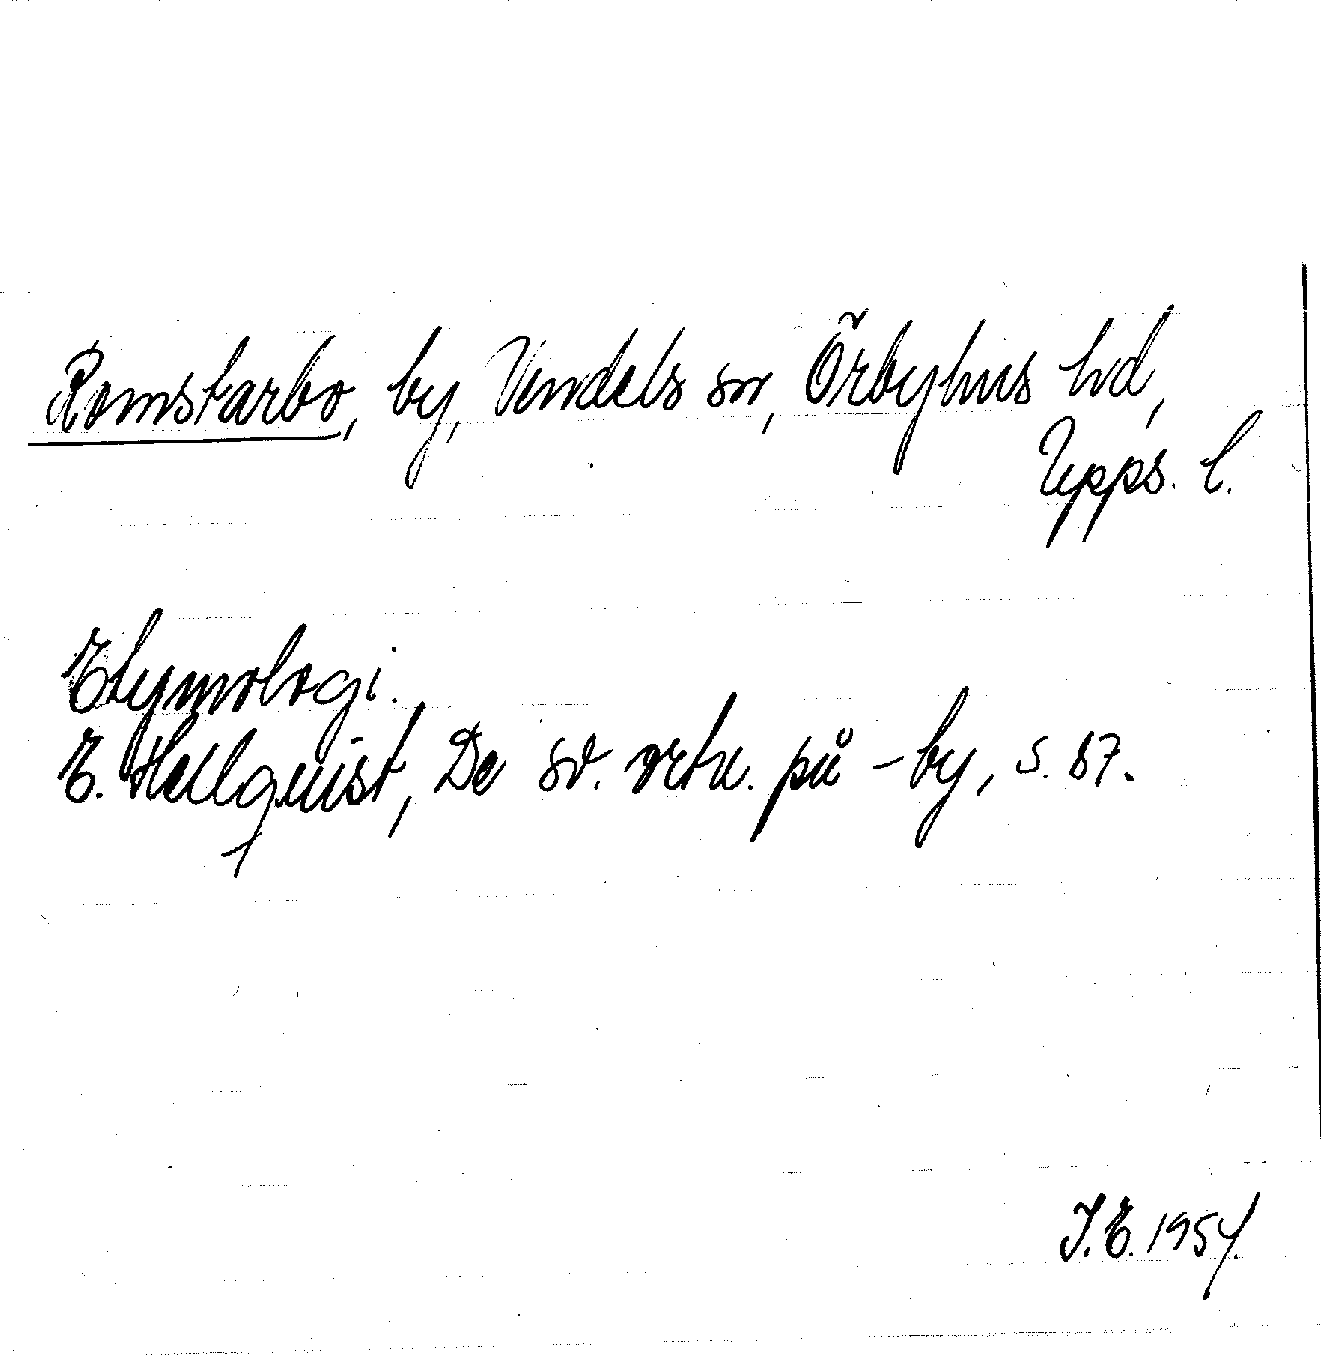 Romstarbo, by, Vendels sn, Örbyhus hd,
Upps. l.
Etymologi.
E. Hellquist, De sv. ortn. på -by, s. 87.
J. E. 1954.